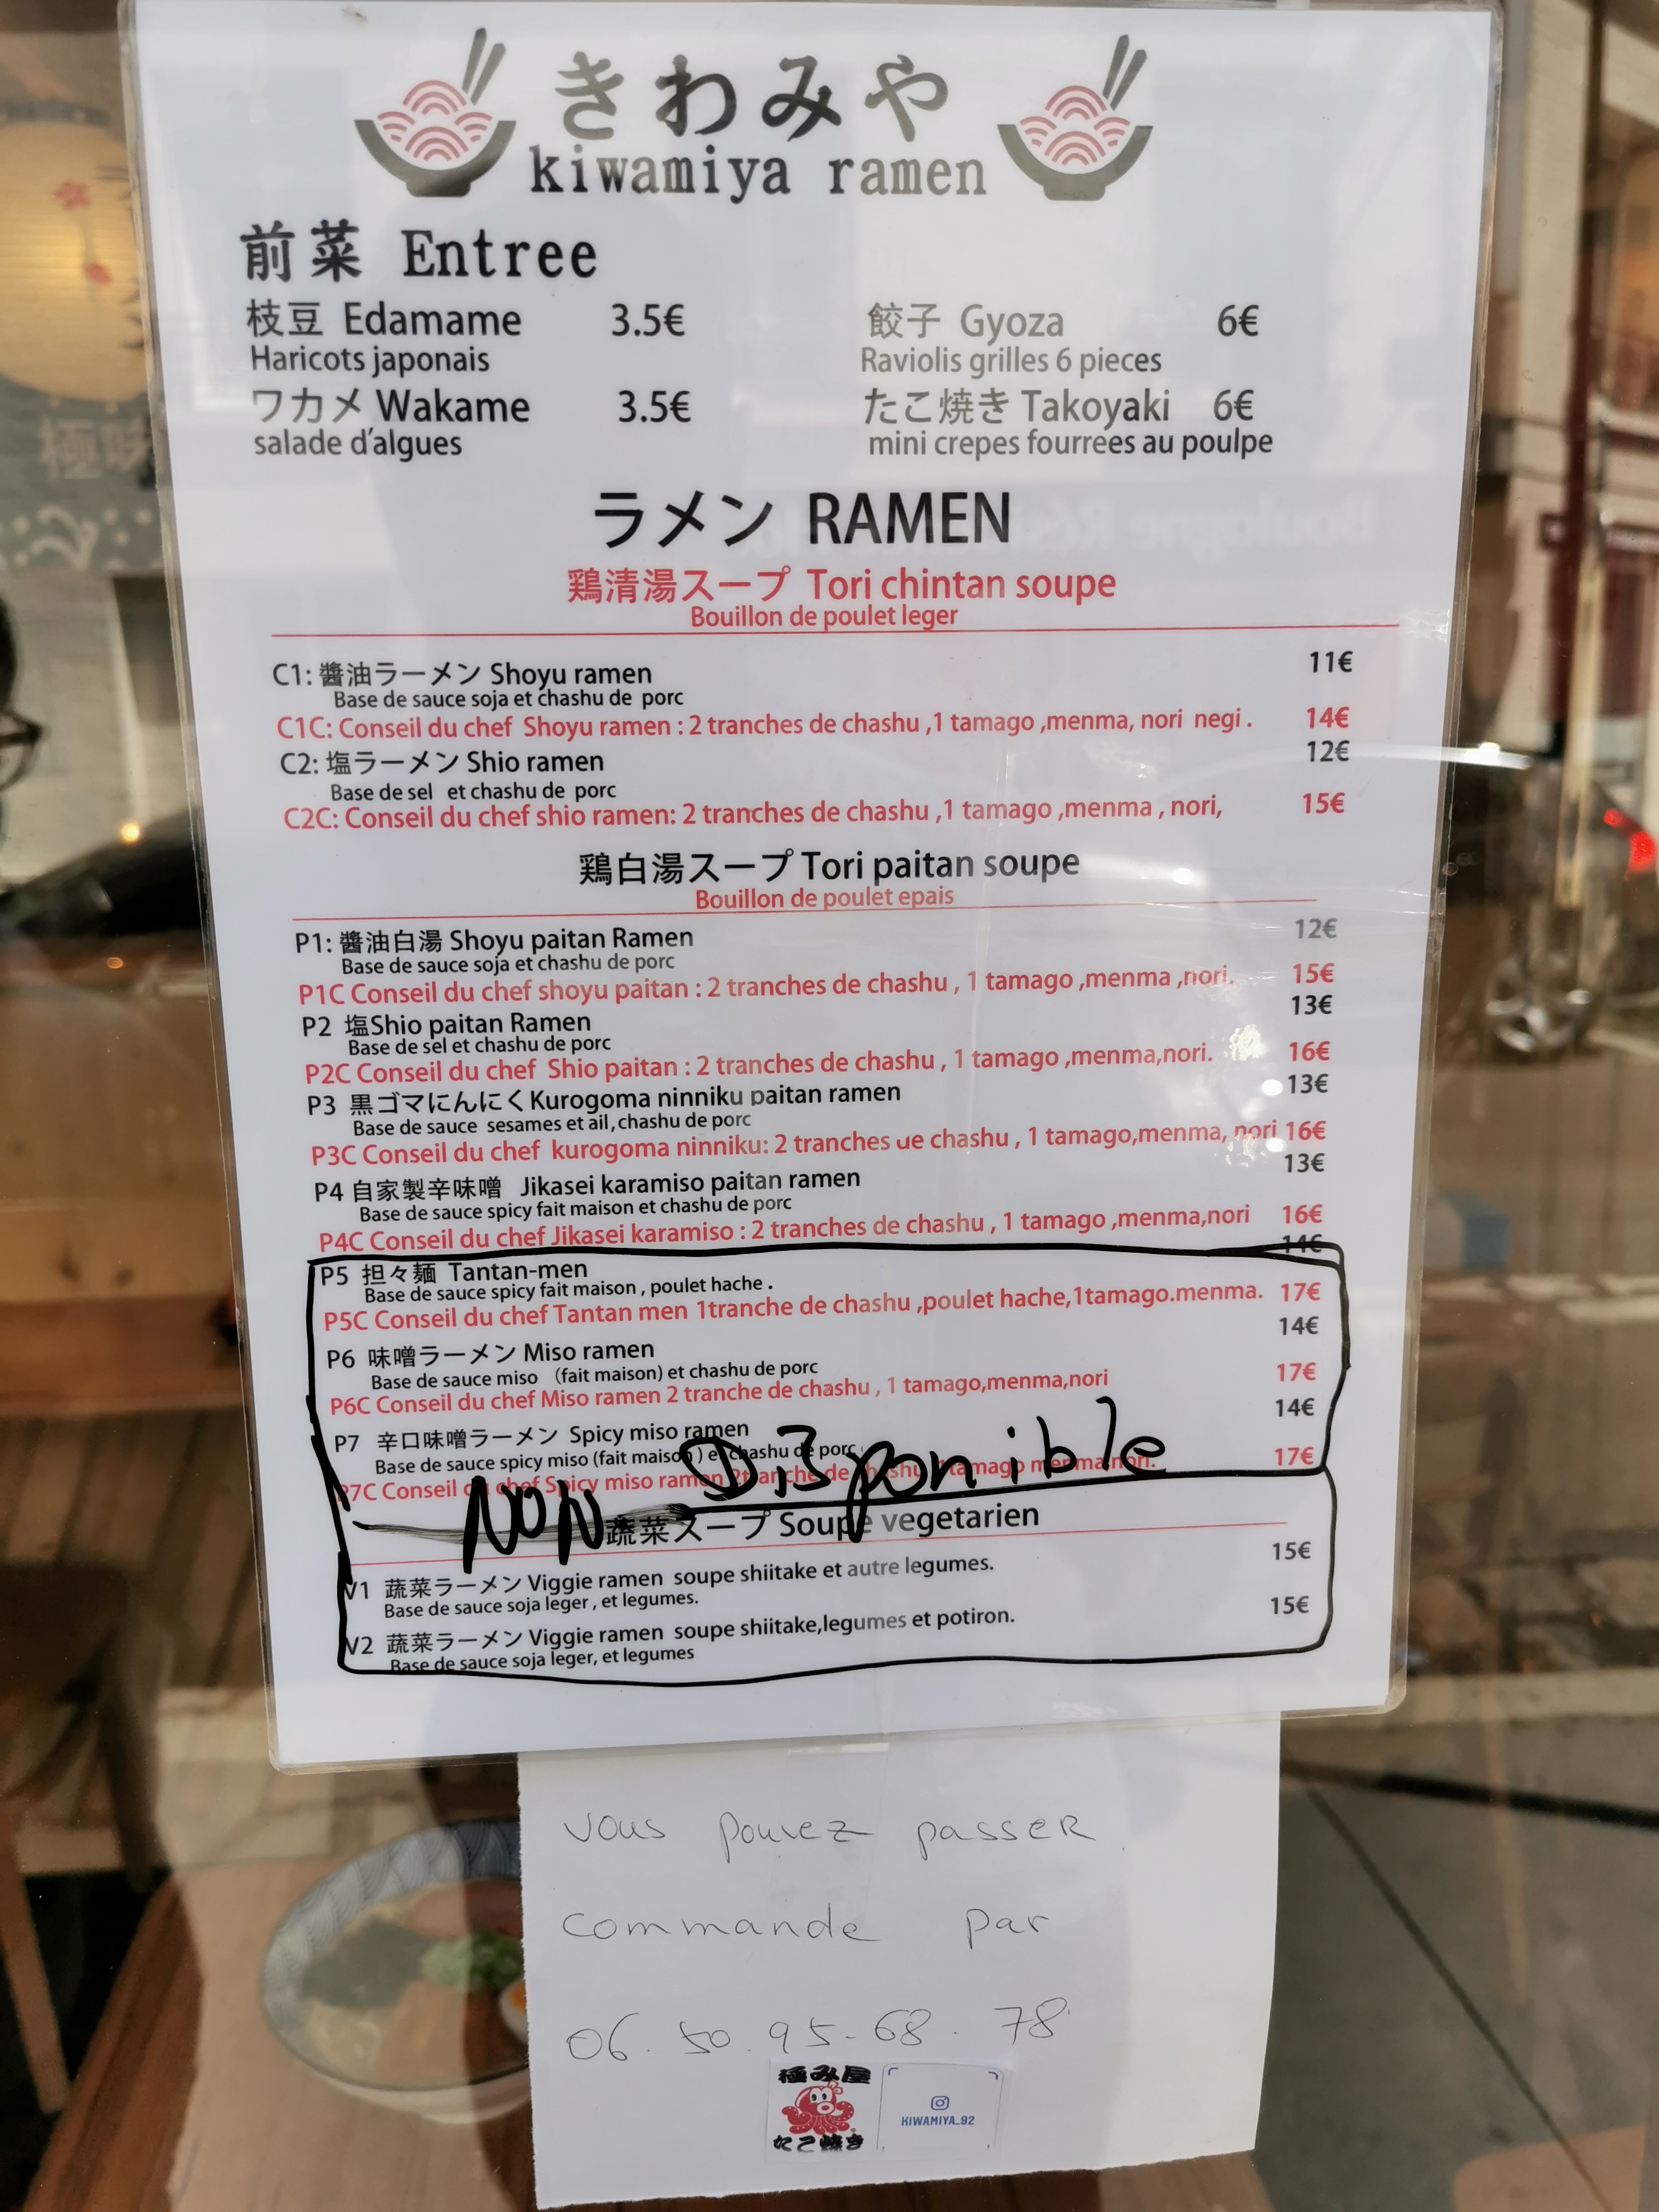 きわみや
kiwamiya ramen
前菜 Entree
枝豆 Edamame 3.5€
Haricots japonais
ワカメ Wakame 3.5€
salade d'algues
餃子 Gyoza 6€
Raviolis grilles 6 pieces
たこ焼き Takoyaki 6€
mini crepes fourrees au poulpe
ラメン RAMEN
鶏清湯スープ Tori chintan soupe
Bouillon de poulet leger
C1: 醬油ラーメン Shoyu ramen 11€
Base de sauce soja et chashu de porc
C1C: Conseil du chef Shoyu ramen : 2 tranches de chashu ,1 tamago ,menma, nori negi . 14€
C2: 塩ラーメン Shio ramen 12€
Base de sel et chashu de porc
C2C: Conseil du chef shio ramen: 2 tranches de chashu ,1 tamago ,menma , nori, 15€
鶏白湯スープ Tori paitan soupe
Bouillon de poulet epais
P1: 醬油白湯 Shoyu paitan Ramen 12€
Base de sauce soja et chashu de porc
P1C Conseil du chef shoyu paitan : 2 tranches de chashu , 1 tamago ,menma ,nori. 15€
P2 塩Shio paitan Ramen 13€
Base de sel et chashu de porc
P2C Conseil du chef Shio paitan : 2 tranches de chashu , 1 tamago ,menma,nori. 16€
P3 黒ゴマにんにくKurogoma ninniku paitan ramen 13€
Base de sauce sesames et ail,chashu de porc
P3C Conseil du chef kurogoma ninniku: 2 tranches de chashu , 1 tamago,menma, nori 16€
P4 自家製辛味噌 Jikasei karamiso paitan ramen 13€
Base de sauce spicy fait maison et chashu de porc
P4C Conseil du chef Jikasei karamiso : 2 tranches de chashu , 1 tamago ,menma,nori 16€
P5 担々麺 Tantan-men 14€
Base de sauce spicy fait maison , poulet hache .
P5C Conseil du chef Tantan men 1tranche de chashu ,poulet hache,1tamago.menma. 17€
P6 味噌ラーメン Miso ramen 14€
Base de sauce miso (fait maison) et chashu de porc
P6C Conseil du chef Miso ramen 2 tranche de chashu , 1 tamago,menma,nori 17€
P7 辛口味噌ラーメン Spicy miso ramen 14€
Base de sauce spicy miso (fait maison) et chashu de porc
P7C Conseil du chef Spicy miso ramen 2tranche de chashu 1tamago menma.nori. 17€
NON Disponible
蔬菜スープ Soupe vegetarien
V1 蔬菜ラーメン Viggie ramen soupe shiitake et autre legumes. 15€
Base de sauce soja leger , et legumes.
V2 蔬菜ラーメン Viggie ramen soupe shiitake,legumes et potiron. 15€
Base de sauce soja leger, et legumes
Vous pouvez passer
commande par
06.50.95-68.78
極み屋
たこ焼き
KIWAMIYA_92
極味